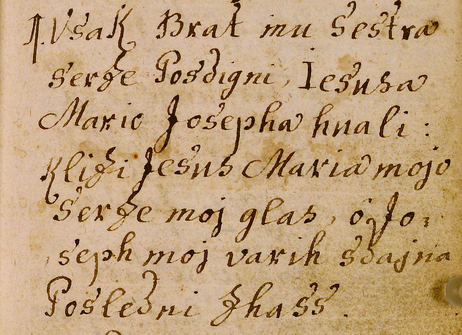 1. Vsak Brat inu Sestra
serze Posdigni, Iesusa
Mario Josepha hvali:
Klizi Jesus Maria mojo
Serze moj glas, o Jo,
seph moj varih sdajna
Posledni Zhass.